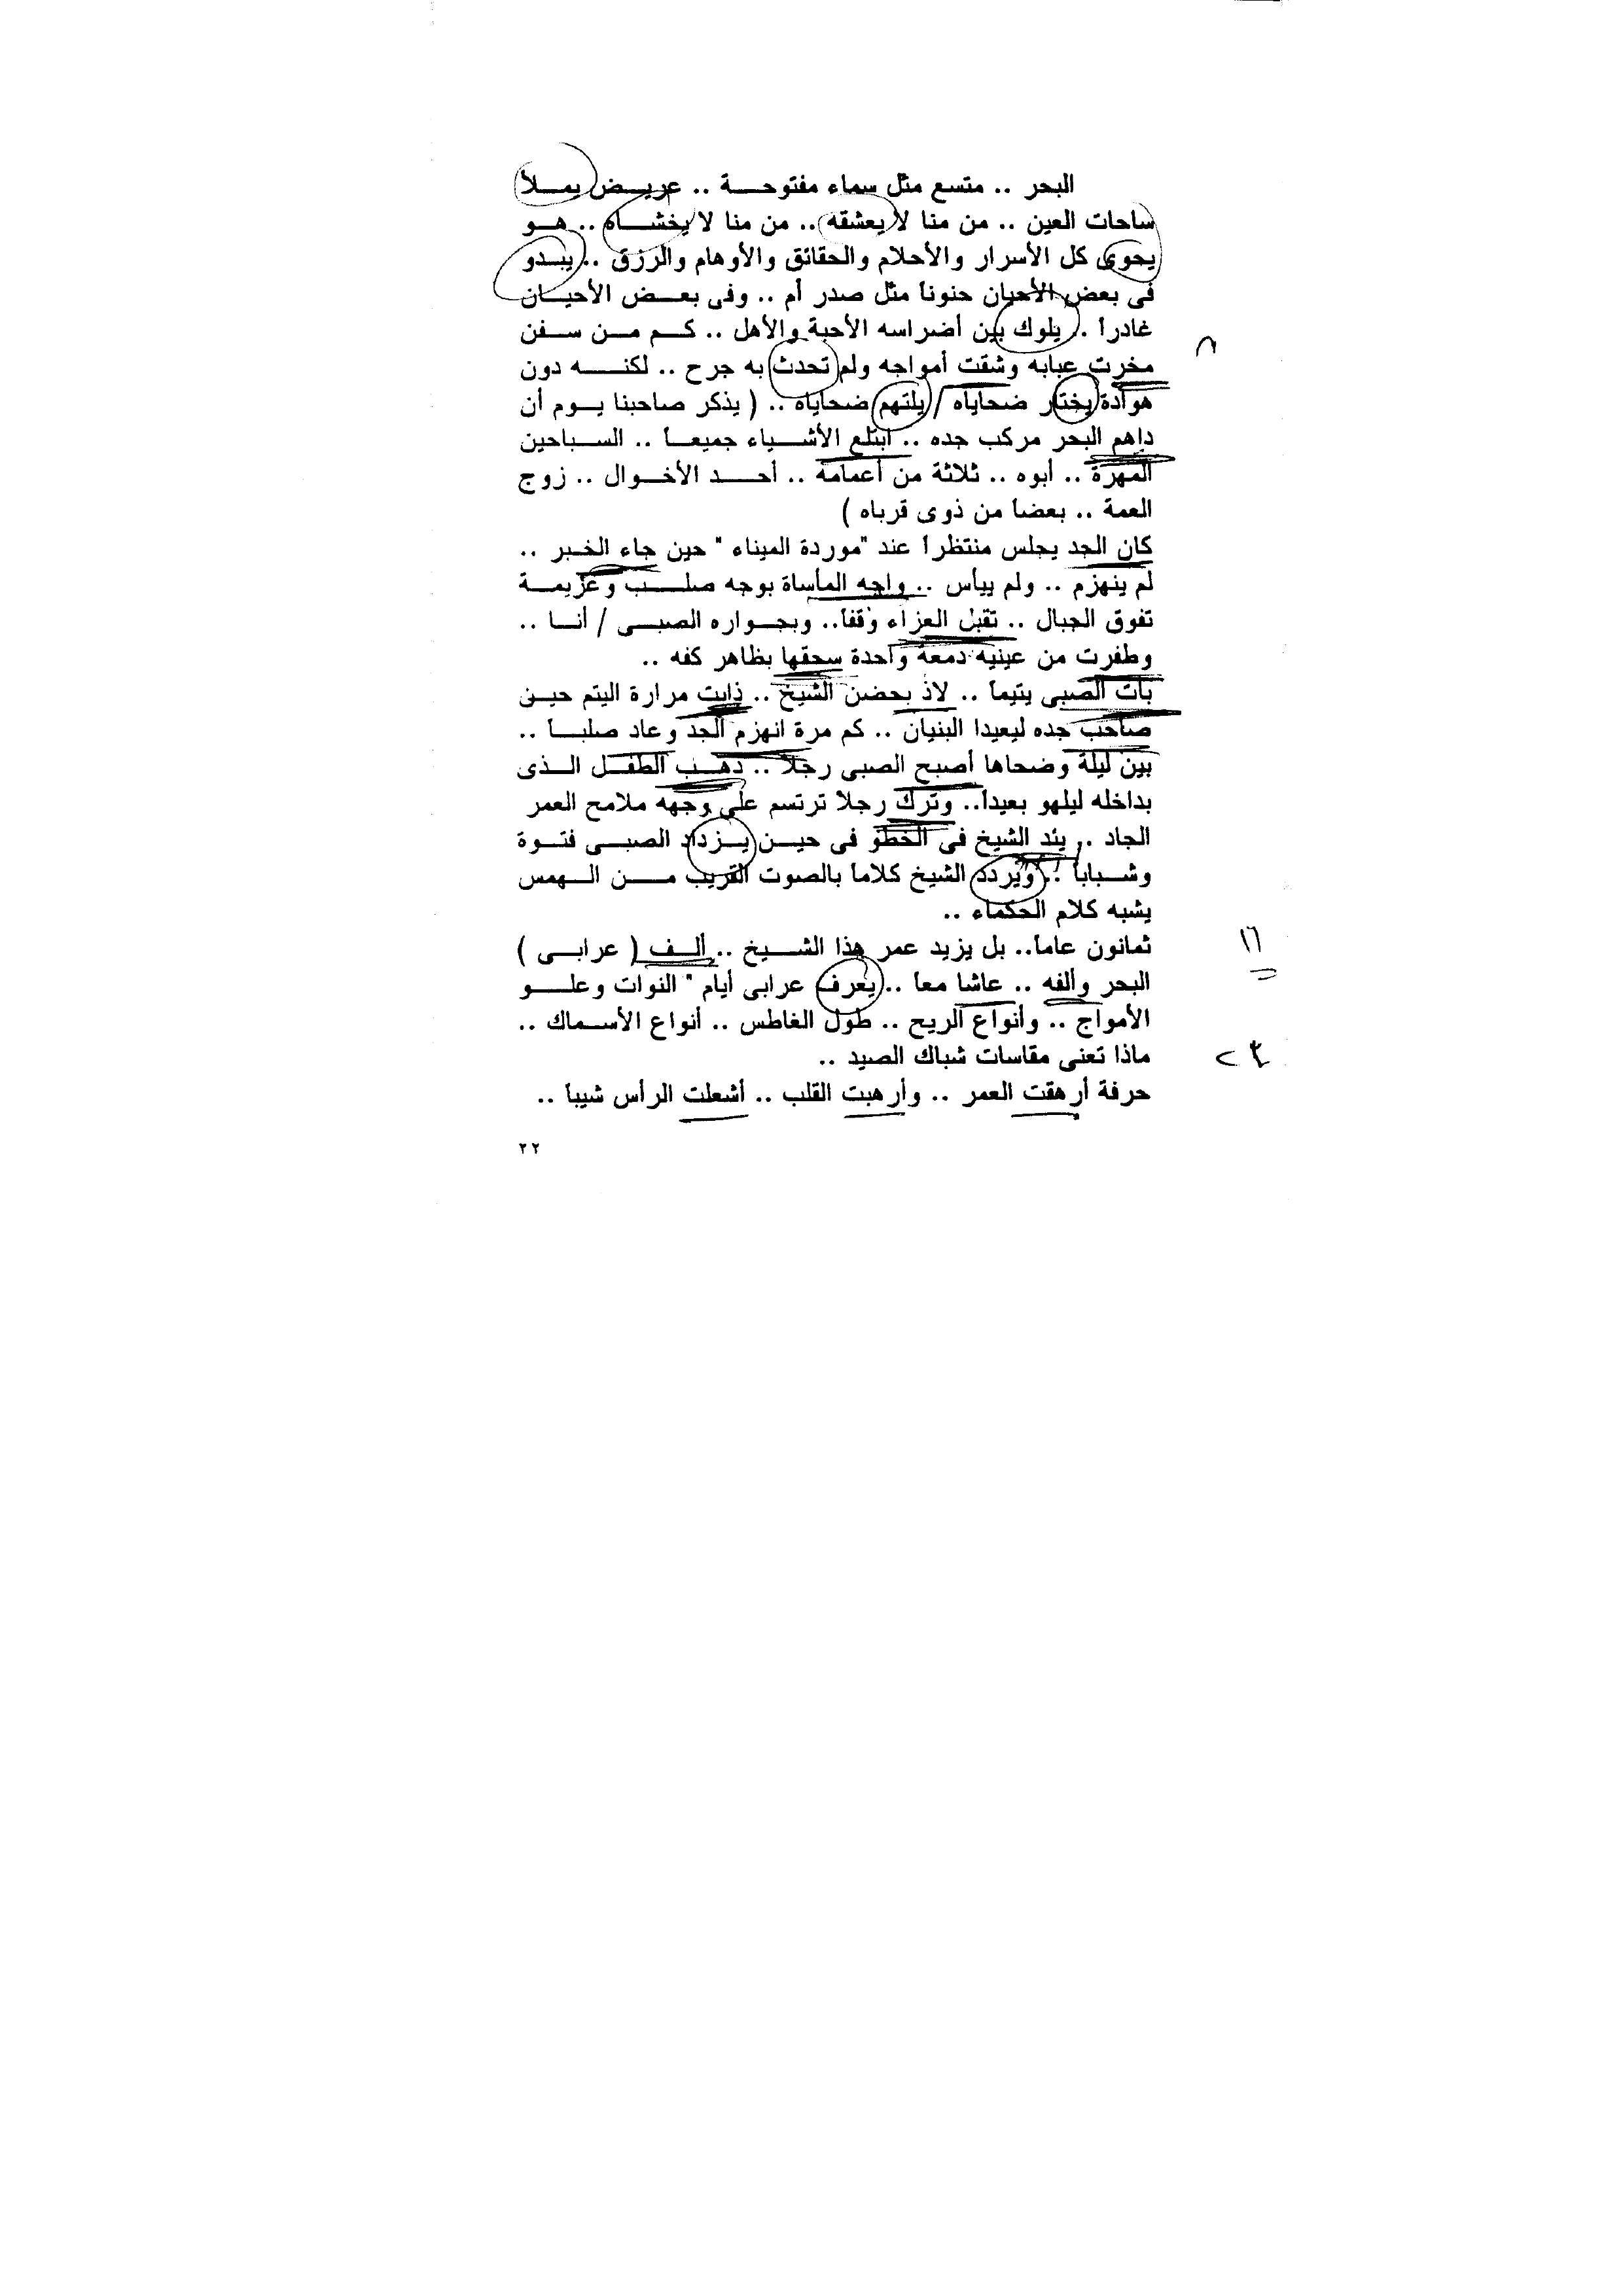 البحر .. متسع مثل سماء مفتوحة .. عريض يملأ
ساحات العين .. من منا لا يعشقه .. من منا لا يخشاه .. هو
يحوى كل الأسرار والأحلام والحقائق والأوهام والرزق .. يبدو
فى بعض الأحيان حنونا مثل صدر أم .. وفى بعض الأحيان
غادرا .. يلوك بين أضراسه الأحبة والأهل .. كم من سفن
مخرت عبابه وشقت أمواجه ولم تحدث به جرح .. لكنه دون
هوادة يختار ضحاياه / يلتهم ضحاياه .. ( يذكر صاحبنا يوم أن
داهم البحر مركب جده .. ابتلع الأشياء جميعا .. السباحين
المهرة .. أبوه .. ثلاثة من أعمامه .. أحد الأخوال .. زوج
العمة .. بعضا من ذوى قرباه )
كان الجد يجلس منتظرا عند "موردة الميناء " حين جاء الخبر ..
لم ينهزم .. ولم ييأس .. واجه المأساة بوجه صلب وعزيمة
تفوق الجبال .. تقبل العزاء وقفا.. وبجواره الصبى / أنا ..
وطفرت من عينيه دمعة واحدة سحقها بظاهر كفه ..
بات الصبى يتيما .. لاذ بحضن الشيخ .. ذابت مرارة اليتم حين
صاحب جده ليعيدا البنيان .. كم مرة انهزم الجد وعاد صلبا ..
بين ليلة وضحاها أصبح الصبى رجلا .. ذهب الطفل الذى
بداخله ليلهو بعيدا.. وترك رجلا ترتسم على وجهه ملامح العمر
الجاد .. يئد الشيخ فى الخطو فى حين يزداد الصبى فتوة
وشبابا .. ويردد الشيخ كلاما بالصوت القريب من الهمس
يشبه كلام الحكماء ..
ثمانون عاما.. بل يزيد عمر هذا الشيخ .. ألف ( عرابى )
البحر وألفه .. عاشا معا .. يعرف عرابى أيام " النوات وعلو
الأمواج .. وأنواع الريح .. طول الغاطس .. أنواع الأسماك ..
ماذا تعنى مقاسات شباك الصيد ..
حرفة أرهقت العمر .. وأرهبت القلب .. أشعلت الرأس شيبا ..
٢٢
٨
١٦